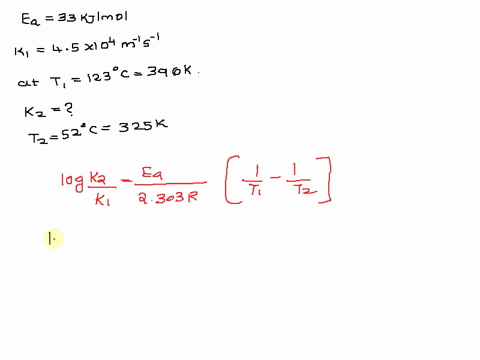 Ea = 33 KJ/mol
K₁ = 4.5 x10⁴ m⁻¹s⁻¹
at T₁ = 123°C = 396K.
K₂ = ?
T₂ = 52°C = 325K
log K₂/K₁ = Ea/2.303R [1/T₁ - 1/T₂]